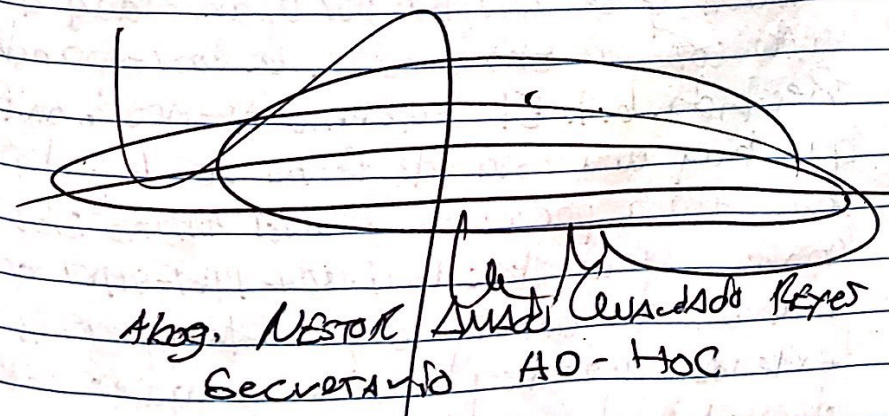 Abog. NESTOR AMADO Reyes
Secretario AD-HOC